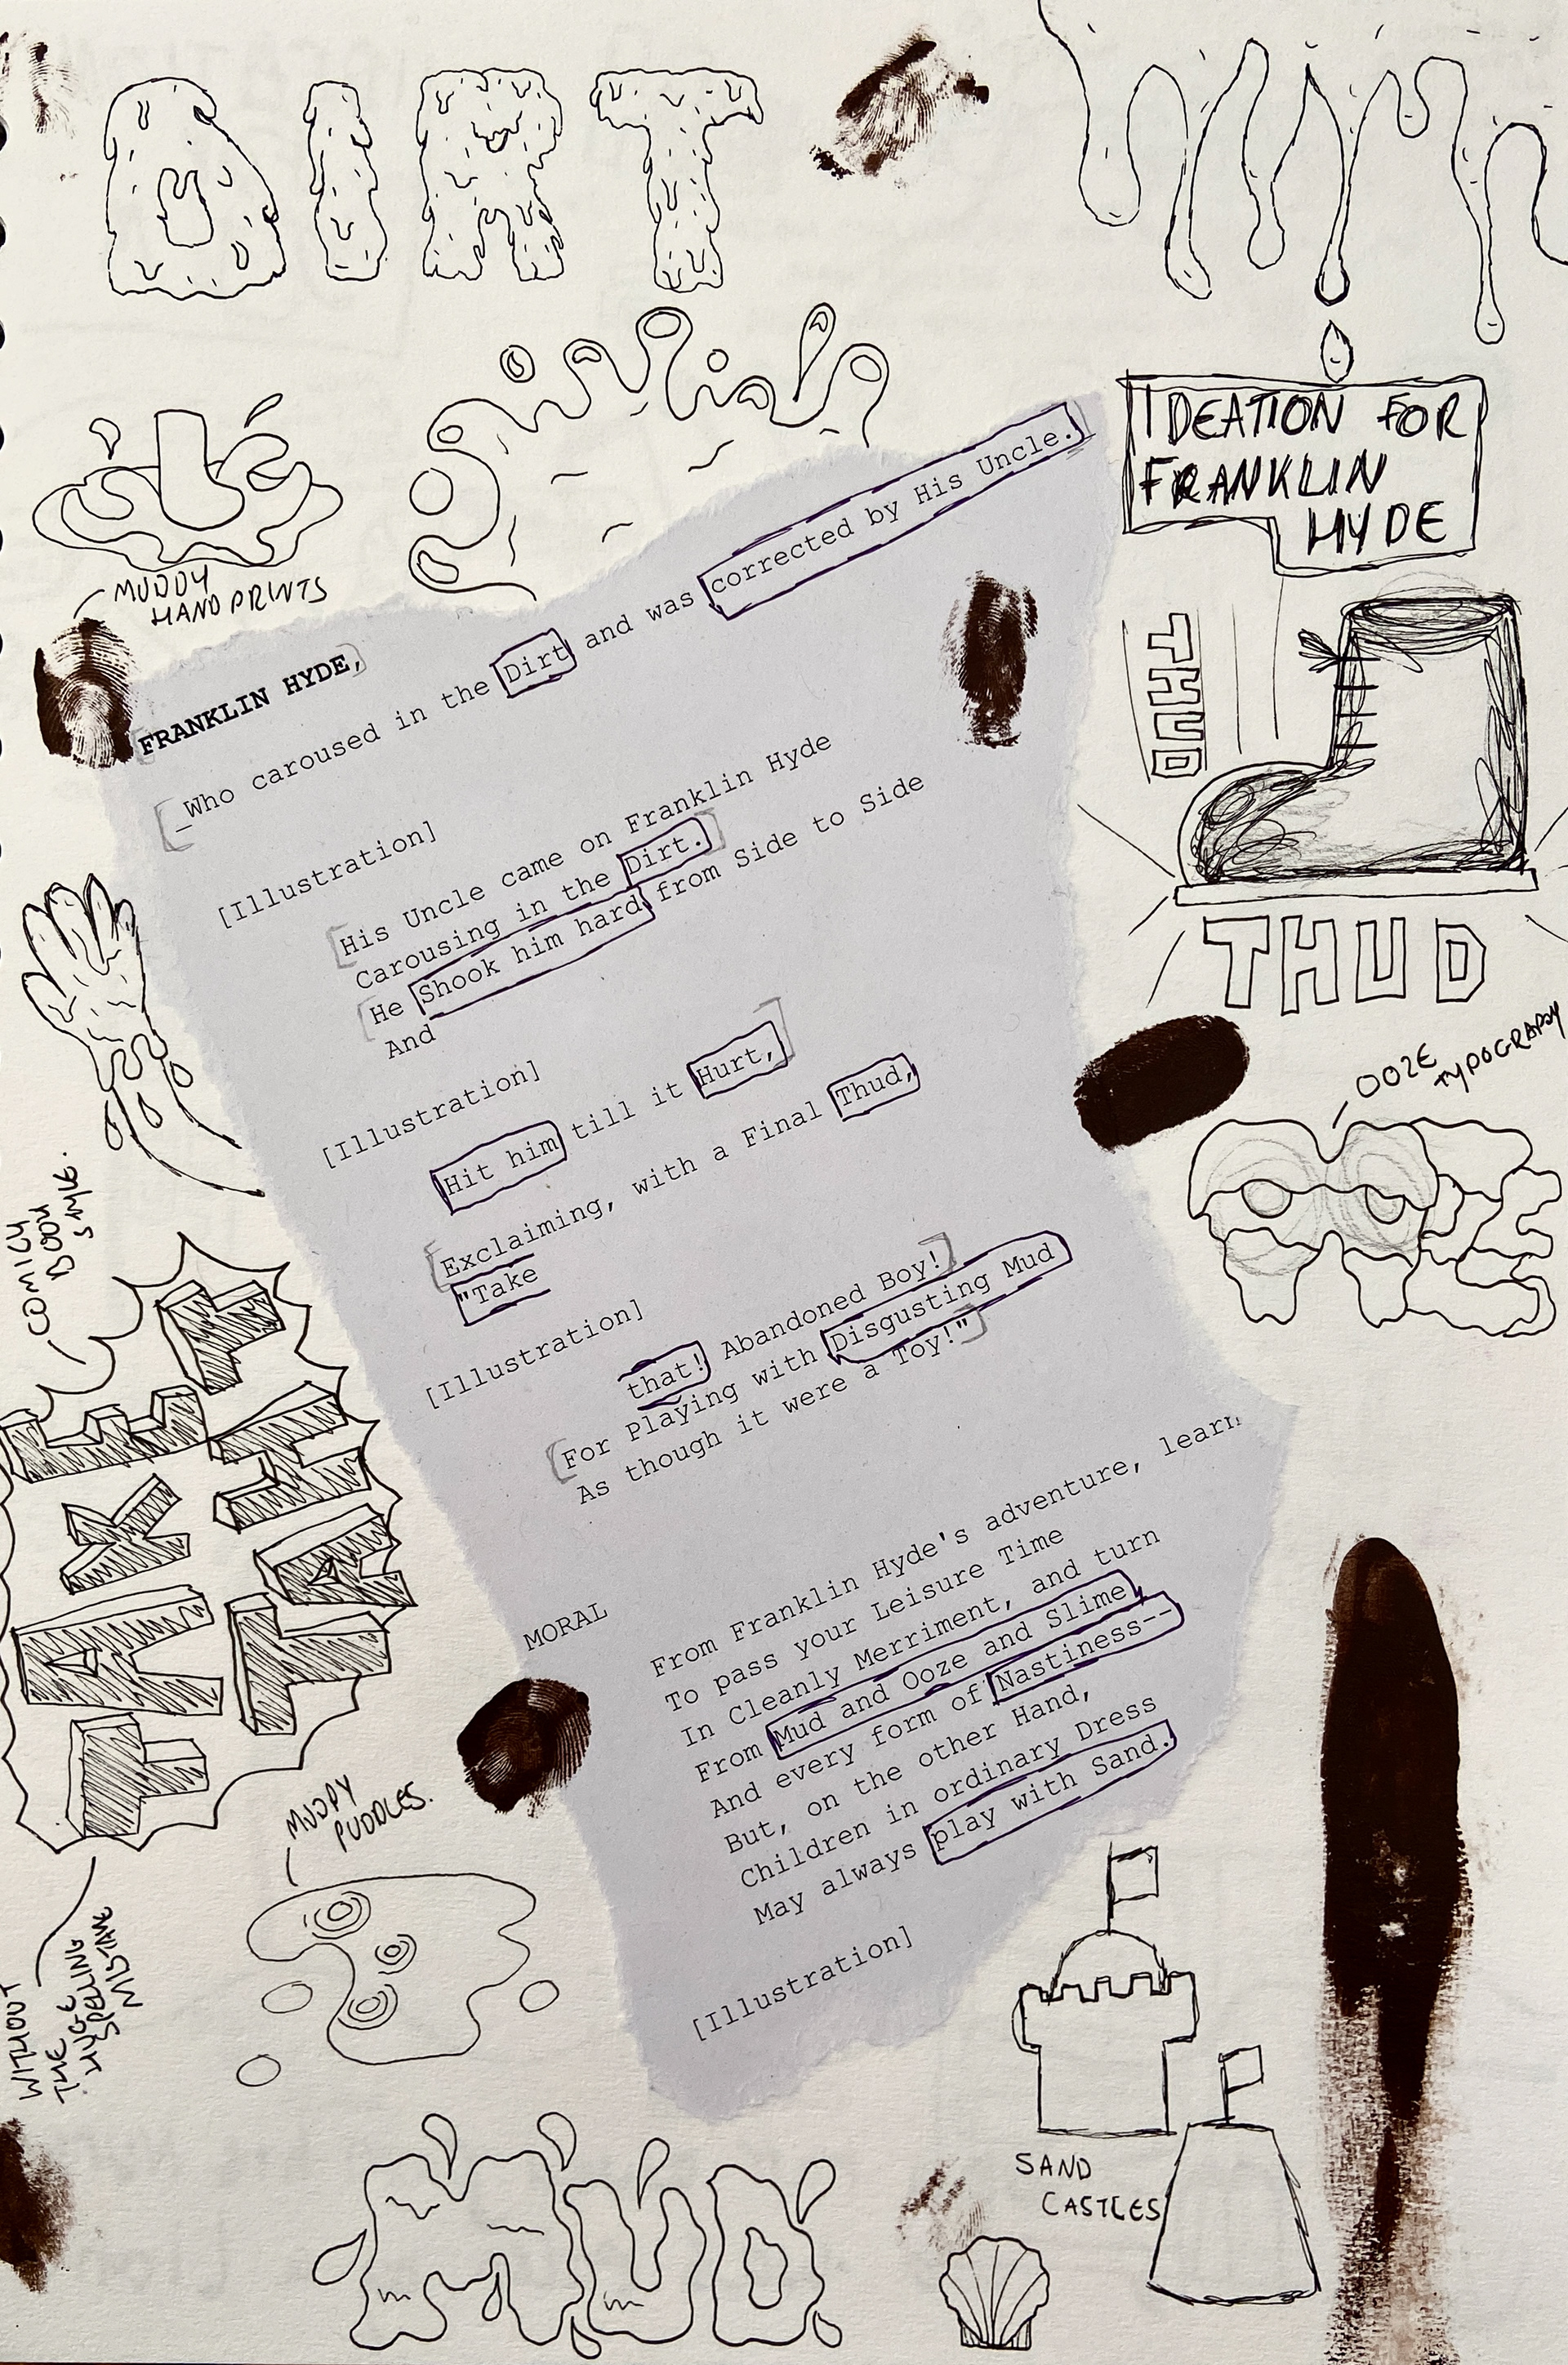 DIRT
IDEATION FOR
FRANKLIN
HYDE
MUDDY
HAND PRINTS
FRANKLIN HYDE,
_Who caroused in the Dirt and was corrected by His Uncle.
[Illustration]
His Uncle came on Franklin Hyde
Carousing in the Dirt.
He Shook him hard from Side to Side
And
[Illustration]
Hit him till it Hurt,
Exclaiming, with a Final Thud,
"Take
[Illustration]
that! Abandoned Boy!
For Playing with Disgusting Mud
As though it were a Toy!"
MORAL
From Franklin Hyde's adventure, learn
To pass your Leisure Time
In Cleanly Merriment, and turn
From Mud and Ooze and Slime
And every form of Nastiness--
But, on the other Hand,
Children in ordinary Dress
May always play with Sand.
[Illustration]
THUD
THUD
OOZE
TYPOGRAPHY
OOZE
COMICY
BOOK
STYLE.
TAKE
TAHT
WITHOUT
THE
HUGE
SPELLING
MISTAKE
MUDDY
PUDDLES.
MUD
SAND
CASTLES